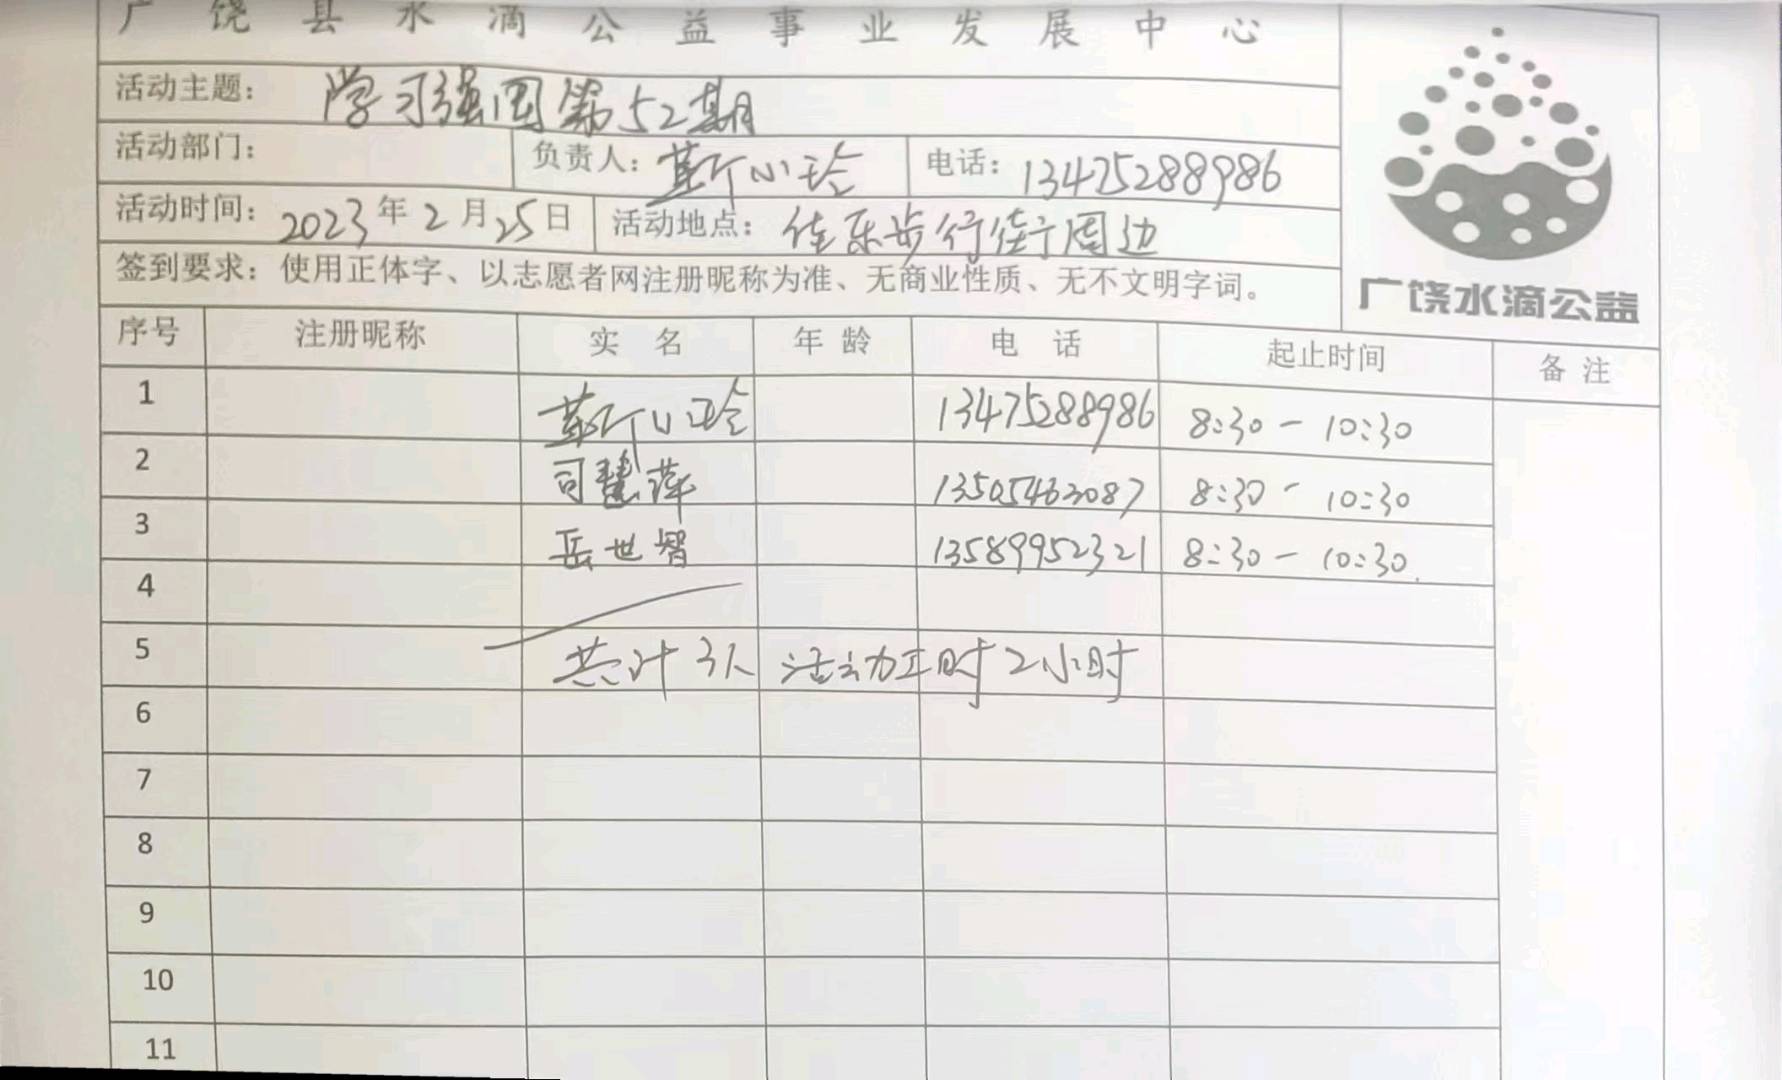 广饶县水滴公益事业发展中心
活动主题: 学习强国第52期
活动部门: 负责人: 靳小玲 电话: 13475288986
活动时间: 2023年2月25日 活动地点: 佳乐步行街周边
签到要求: 使用正体字、以志愿者网注册昵称为准、无商业性质、无不文明字词。
广饶水滴公益
序号 注册昵称 实名 年龄 电话 起止时间 备注
1 靳小玲 13475288986 8:30-10:30
2 司慧萍 13505463087 8:30-10:30
3 岳世智 13589952321 8:30-10:30.
4
5 共计3人 活动工时2小时
6
7
8
9
10
11